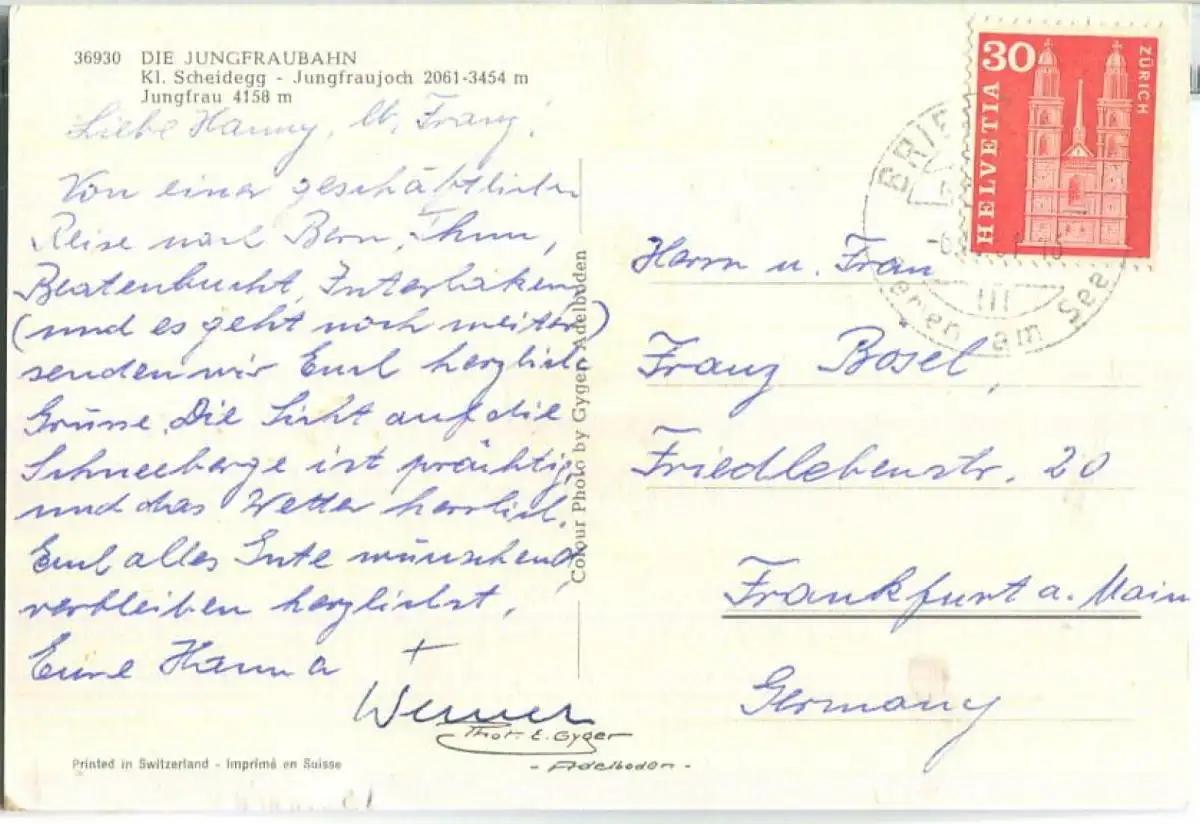 36930 DIE JUNGFRAUBAHN
Kl. Scheidegg - Jungfraujoch 2061-3454 m
Jungfrau 4158 m
Liebe Hanny, lb. Franz,
Von einer geschäftlichen
Reise nach Bern, Thun,
Beatenbucht, Interlaken,
(und es geht noch weiter)
senden wir Euch herzlich
Grüsse. Die Sicht auf die
Schneeberge ist prächtig,
und das Wetter herrlich.
Euch alles Gute wünschend,
verbleiben herzlichst,
Eure Hanna +
Werner
Phot. E. Gyger
- Adelboden -
Printed in Switzerland - Imprimé en Suisse
Colour Photo by Gyger, Adelboden
30
HELVETIA
ZÜRICH
BRIE
am See
Herrn u. Frau
Franz Bösel,
Friedlebenstr. 20
Frankfurt a. Main
Germany